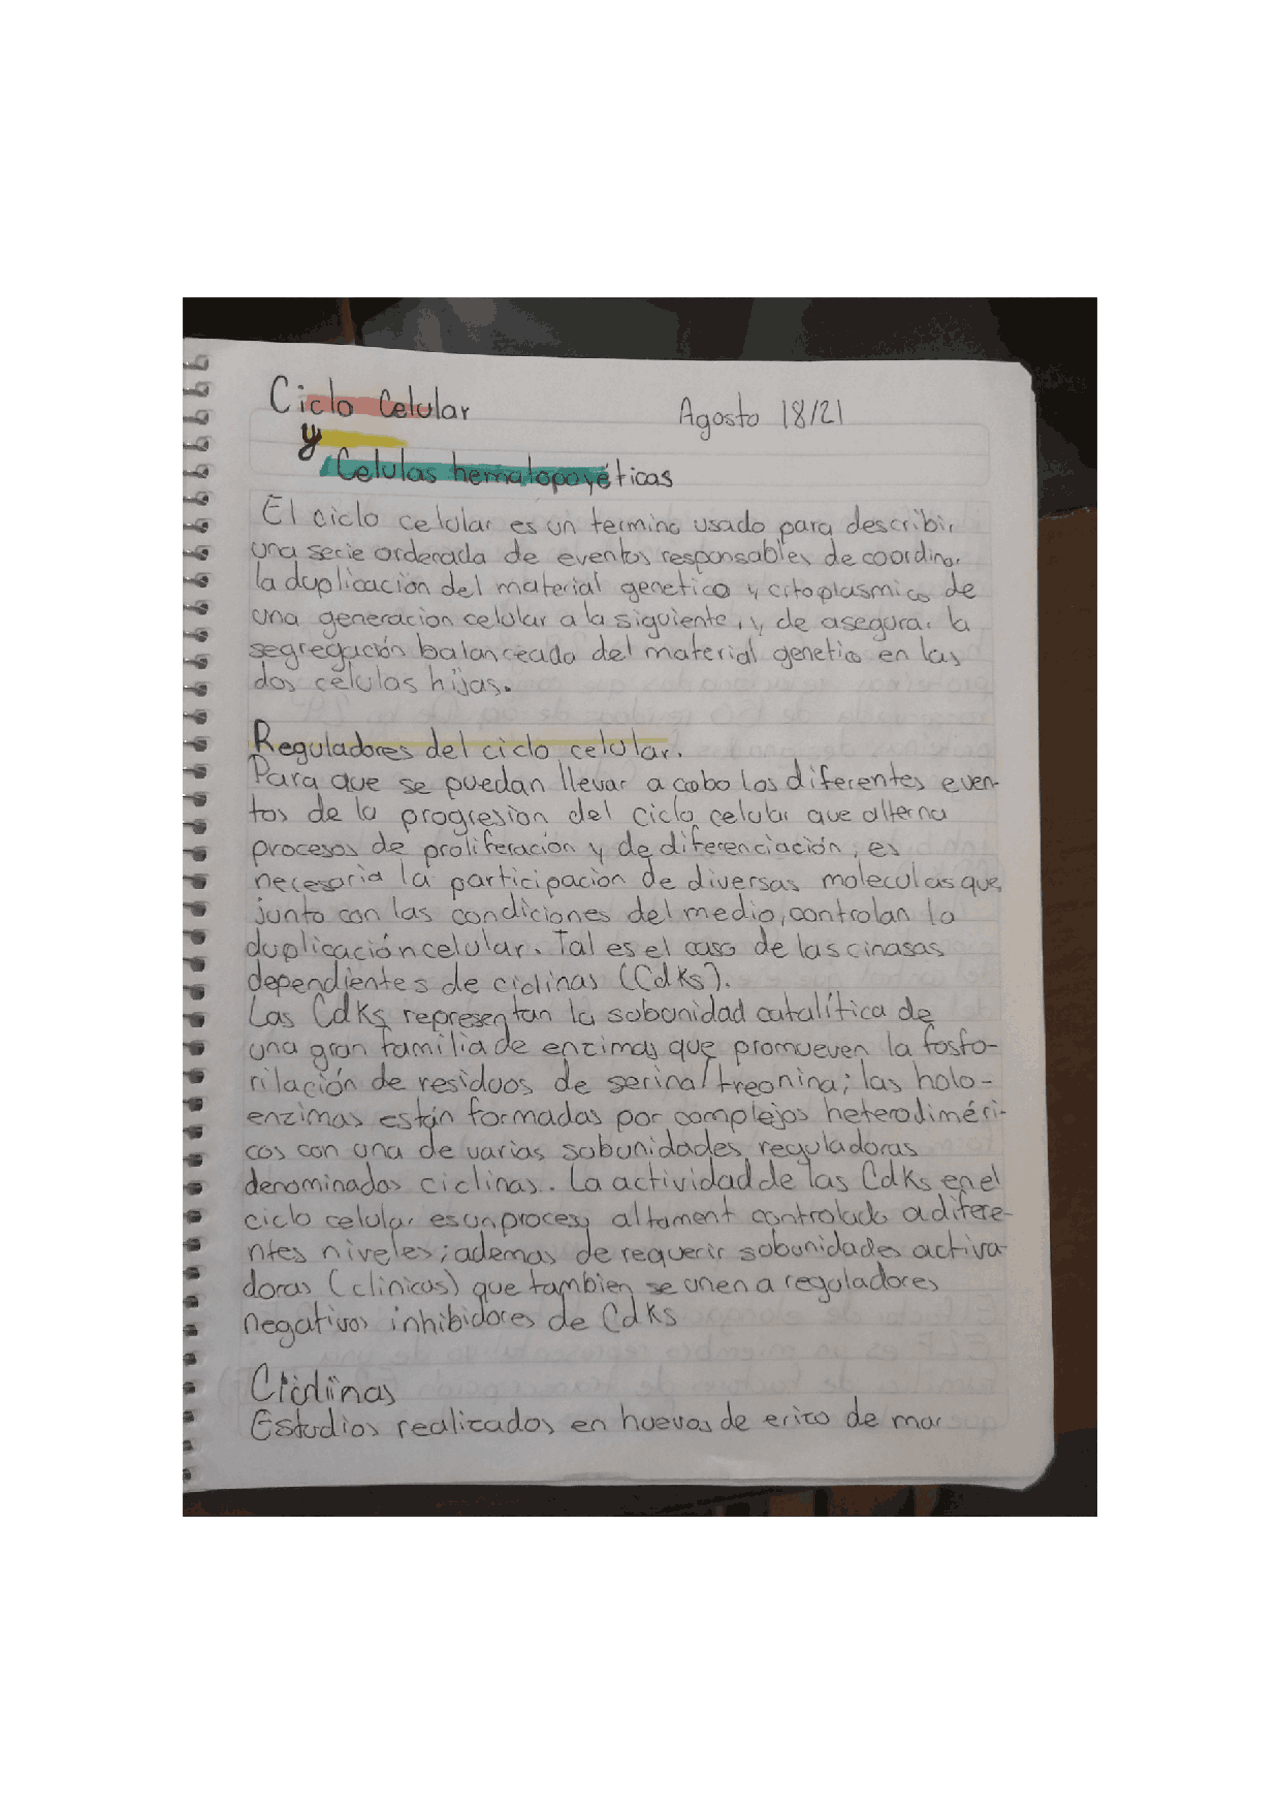 Ciclo Celular
Agosto 18/21
y
Celulas hematopoyéticas
El ciclo celular es un termino usado para describir
una serie ordenada de eventos responsables de coordinar
la duplicación del material genetico y citoplasmico de
una generacion celular a la siguiente, y de asegurar la
segregación balanceada del material genetico en las
dos celulas hijas.
Reguladores del ciclo celular.
Para que se puedan llevar a cabo los diferentes even-
tos de la progresion del ciclo celular que alterna
procesos de proliferación y de diferenciación, es
necesaria la participacion de diversas moleculas que,
junto con las condiciones del medio, controlan la
duplicación celular. Tal es el caso de las cinasas
dependientes de ciclinas (CdKs).
Las CdKs representan la subunidad catalítica de
una gran familia de enzimas que promueven la fosfo-
rilación de residuos de serina/treonina; las holo-
enzimas están formadas por complejos heterodiméri-
cos con una de varias subunidades reguladoras
denominadas ciclinas. La actividad de las CdKs en el
ciclo celular es un proceso altament controlado a difere-
ntes niveles; ademas de requerir subunidades activa-
doras (clinicas) que tambien se unen a reguladores
negativos inhibidores de CdKs
Ciclinas
Estudios realizados en huevos de erizo de mar